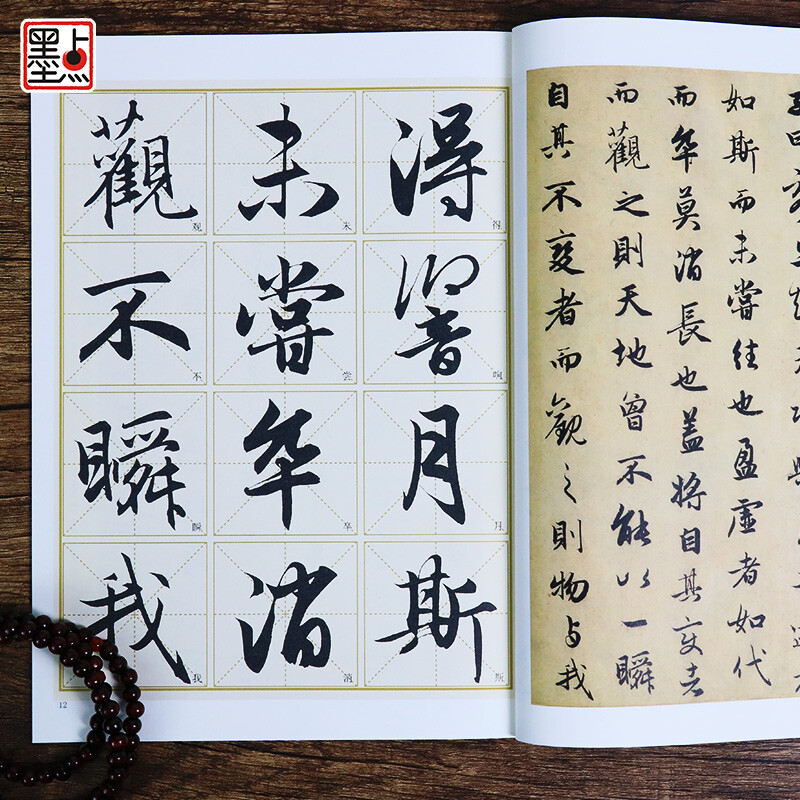 墨点
得響月斯
得响月斯
未嘗卒消
未尝卒消
觀不瞬我
观不瞬我
12
如斯而未嘗往也盈虛者如代
而卒莫消長也蓋將自其變者
而觀之則天地曾不能以一瞬
自其不變者而觀之則物与我